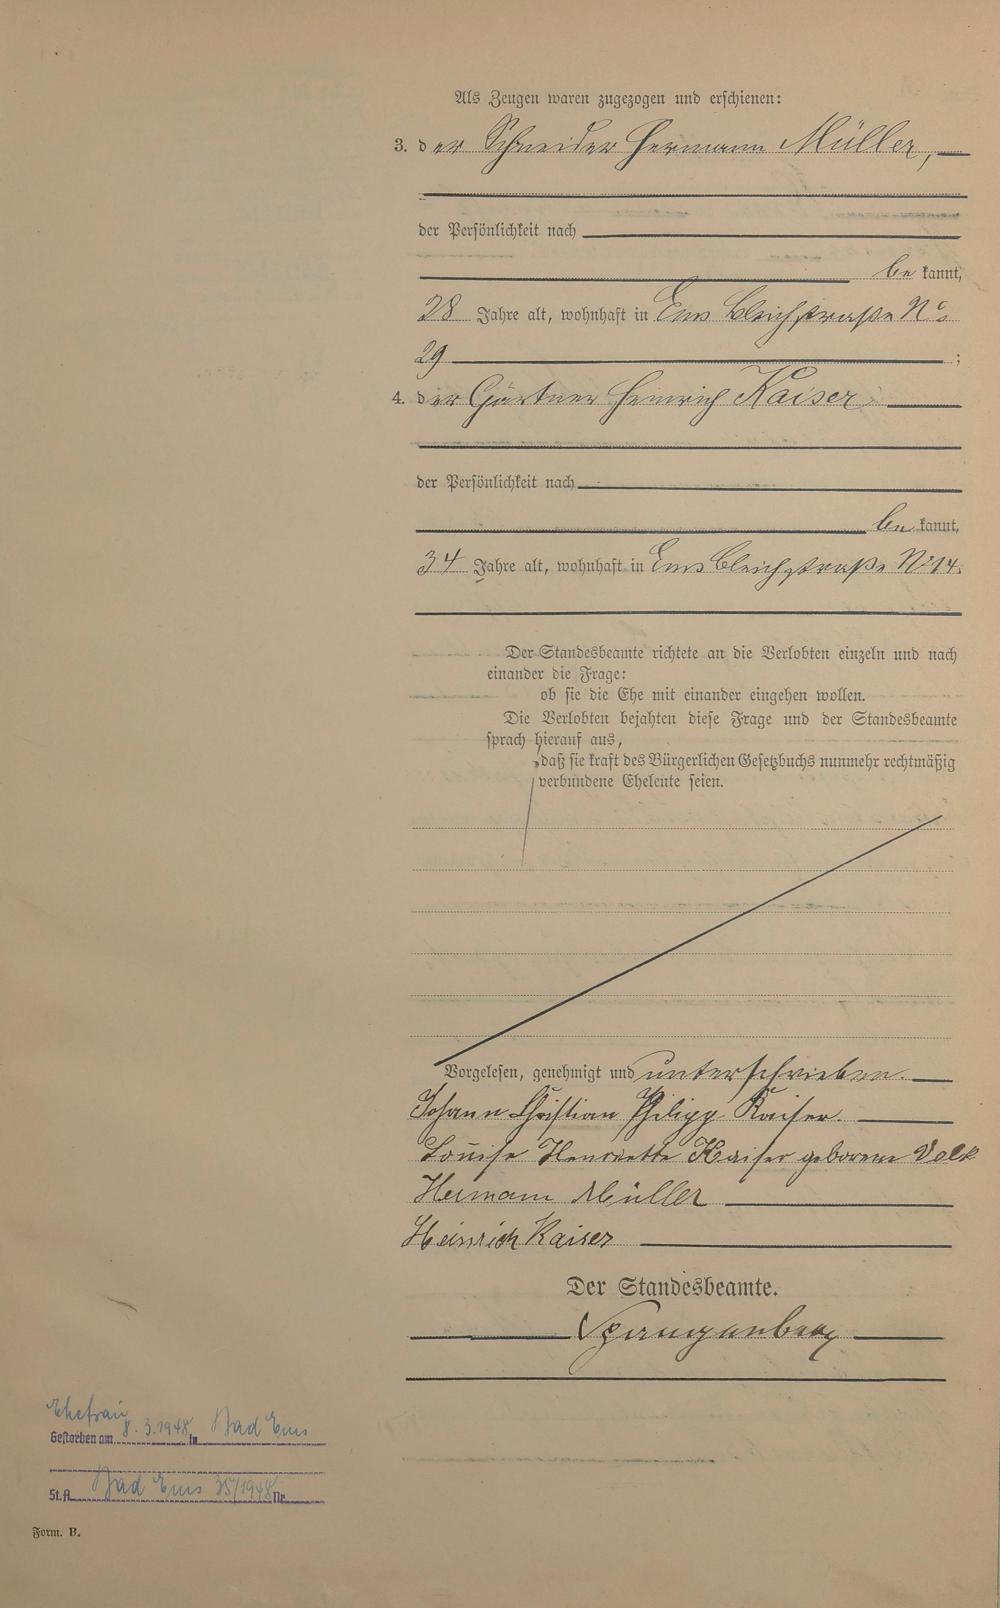 Als Zeugen waren zugezogen und erschienen:
3. der Schneider Hermann Müller,
der Persönlichkeit nach
be kannt,
28 Jahre alt, wohnhaft in Ems Bleichstraße No
29 ;
4. der Gärtner Heinrich Kaiser
der Persönlichkeit nach
be kannt,
34 Jahre alt, wohnhaft in Ems Bleichstraße No 14.
Der Standesbeamte richtete an die Verlobten einzeln und nach
einander die Frage:
ob sie die Ehe mit einander eingehen wollen.
Die Verlobten bejahten diese Frage und der Standesbeamte
sprach hierauf aus,
daß sie kraft des Bürgerlichen Gesetzbuchs nunmehr rechtmäßig
verbundene Eheleute seien.
Vorgelesen, genehmigt und unterschrieben.
Johann Christian Philipp Kaiser.
Louise Henriette Kaiser geborene Volk
Hermann Müller
Heinrich Kaiser
Der Standesbeamte.
Spangenberg
Ehefrau
Gestorben am 8.3.1948 in Bad Ems
St.A. Bad Ems 35/1948 Nr.
Form. B.